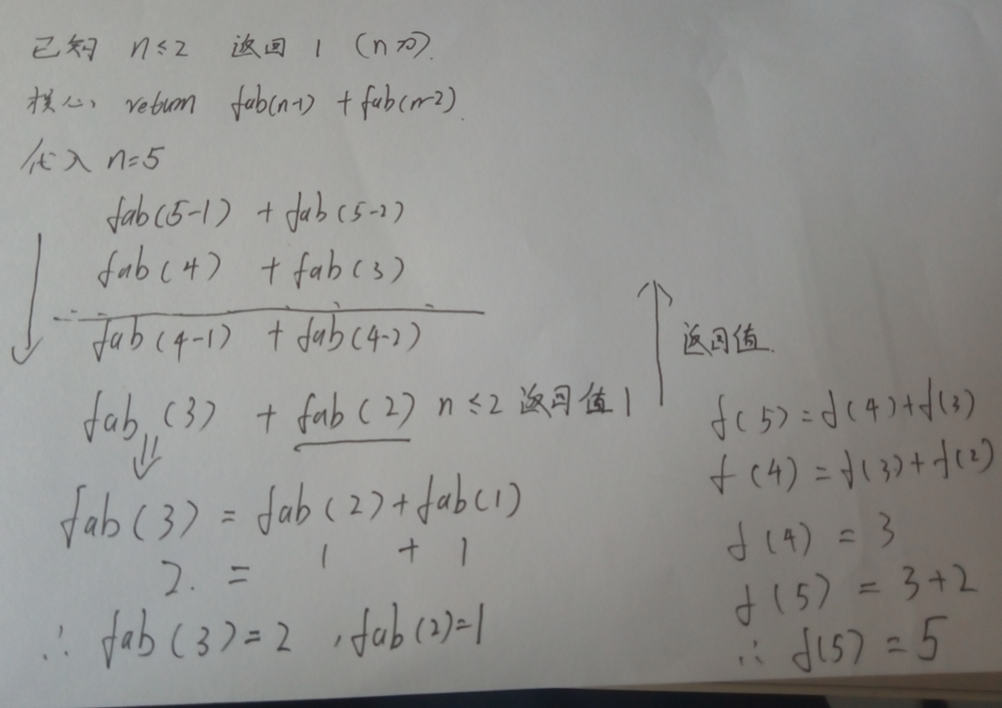 已知 n≤2 返回 1 (n>0).
核心 return fab(n-1) + fab(n-2).
代入 n=5
fab(5-1) + fab(5-2)
fab(4) + fab(3)
fab(4-1) + fab(4-2)
fab(3) + fab(2) n≤2 返回值1
fab(3) = fab(2)+fab(1)
2. = 1 + 1
∴ fab(3)=2 ,fab(2)=1
返回值.
f(5)=f(4)+f(3)
f(4)=f(3)+f(2)
f(4) = 3
f(5) = 3+2
∴ f(5) = 5